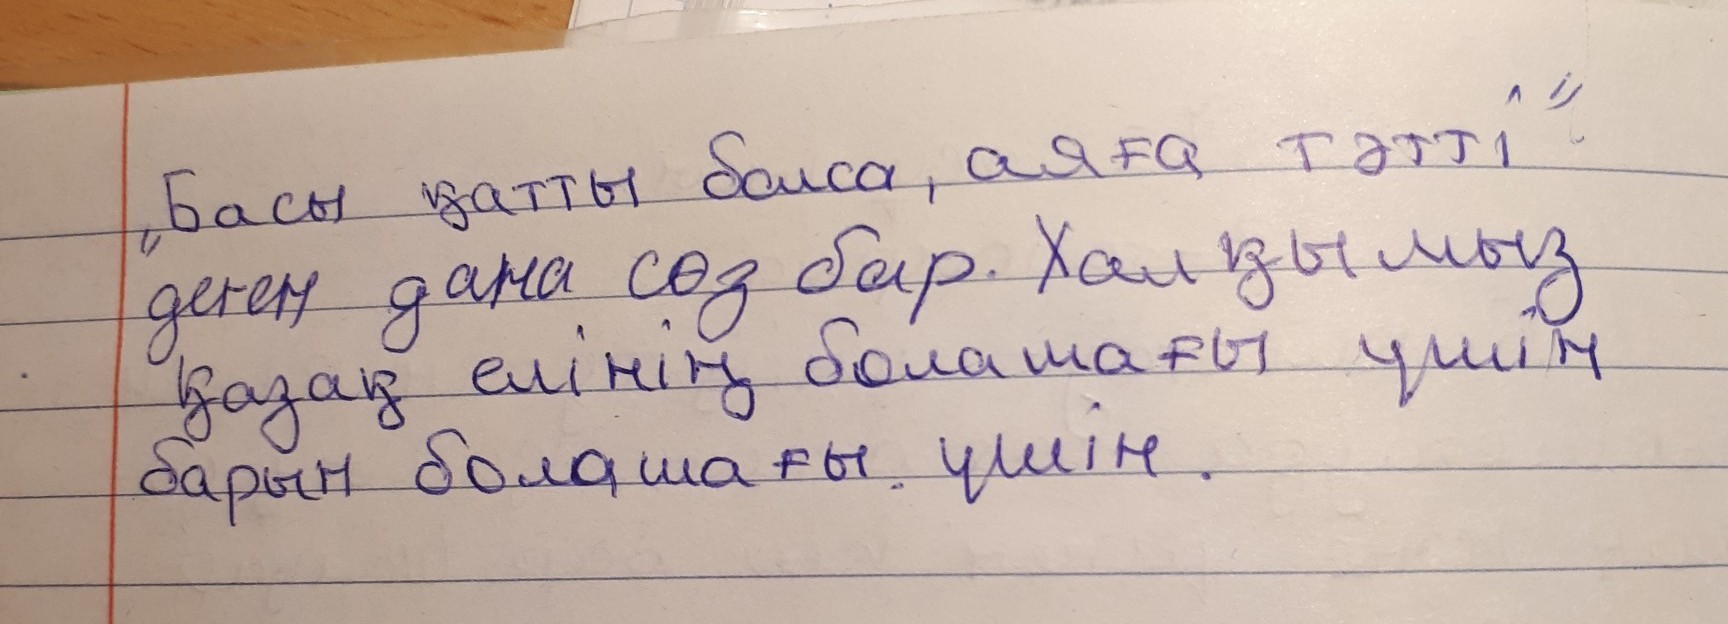 „Басы қатты болса, аяға тәтті"
деген дана сөз бар. Халқымыз
қазақ елінің болашағы үшін
барын болашағы. үшін.